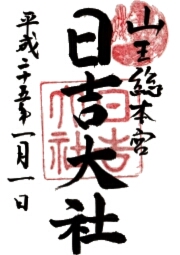 山王総本宮
日吉大社
平成二十五年一月一日
日吉大社